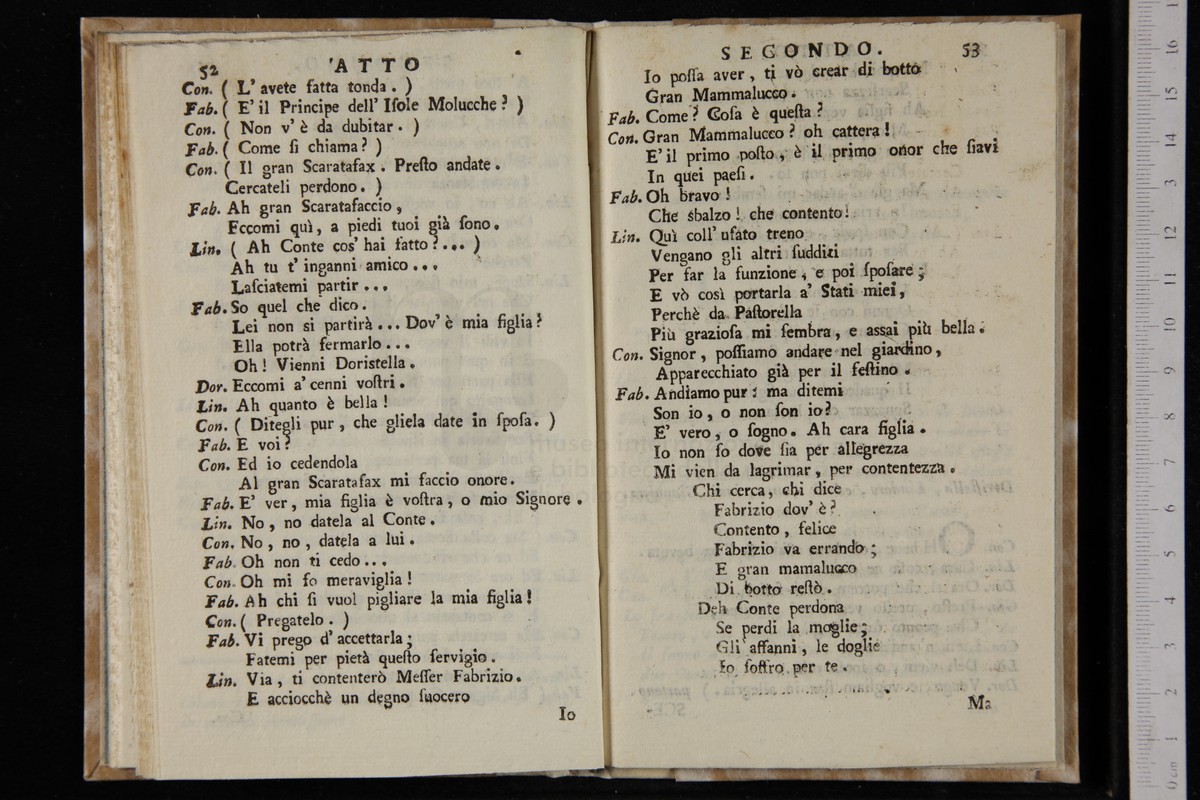 52 ATTO
Con. ( L' avete fatta tonda. )
Fab. ( E' il Principe dell' Iſole Molucche? )
Con. ( Non v' è da dubitar. )
Fab. ( Come ſi chiama? )
Con. ( Il gran Scaratafax. Preſto andate.
Cercateli perdono. )
Fab. Ah gran Scaratafaccio,
Eccomi quì, a piedi tuoi già ſono.
Lin. ( Ah Conte cos' hai fatto?... )
Ah tu t' inganni amico...
Laſciatemi partir...
Fab. So quel che dico.
Lei non si partirà... Dov' è mia figlia?
Ella potrà fermarlo...
Oh! Vienni Doristella.
Dor. Eccomi a' cenni voſtri.
Lin. Ah quanto è bella!
Con. ( Ditegli pur, che gliela date in ſpoſa. )
Fab. E voi?
Con. Ed io cedendola
Al gran Scaratafax mi faccio onore.
Fab. E' ver, mia figlia è voſtra, o mio Signore.
Lin. No, no datela al Conte.
Con. No, no, datela a lui.
Fab. Oh non ti cedo...
Con. Oh mi fo meraviglia!
Fab. Ah chi ſi vuol pigliare la mia figlia!
Con. ( Pregatelo. )
Fab. Vi prego d' accettarla;
Fatemi per pietà queſto ſervigio.
Lin. Via, ti contenterò Meſſer Fabrizio.
E acciocchè un degno ſuocero
Io
SECONDO. 53
Io poſſa aver, ti vò crear di botto
Gran Mammalucco.
Fab. Come? Coſa è queſta?
Con. Gran Mammalucco? oh cattera!
E' il primo poſto, è il primo onor che ſiavi
In quei paeſi.
Fab. Oh bravo!
Che sbalzo! che contento!
Lin. Quì coll' uſato treno
Vengano gli altri ſudditi
Per far la funzione, e poi ſpoſare;
E vò così portarla a' Stati miei,
Perchè da Paſtorella
Più grazioſa mi ſembra, e assai più bella.
Con. Signor, poſſiamo andare nel giardino,
Apparecchiato già per il feſtino.
Fab. Andiamo pur: ma ditemi
Son io, o non ſon io?
E' vero, o ſogno. Ah cara figlia.
Io non ſo dove ſia per allegrezza
Mi vien da lagrimar, per contentezza.
Chi cerca, chi dice
Fabrizio dov' è?
Contento, felice
Fabrizio va errando;
E gran mamalucco
Di botto reſtò.
Deh Conte perdona
Se perdi la moglie;
Gli affanni, le doglie
Io ſoffro per te.
Ma